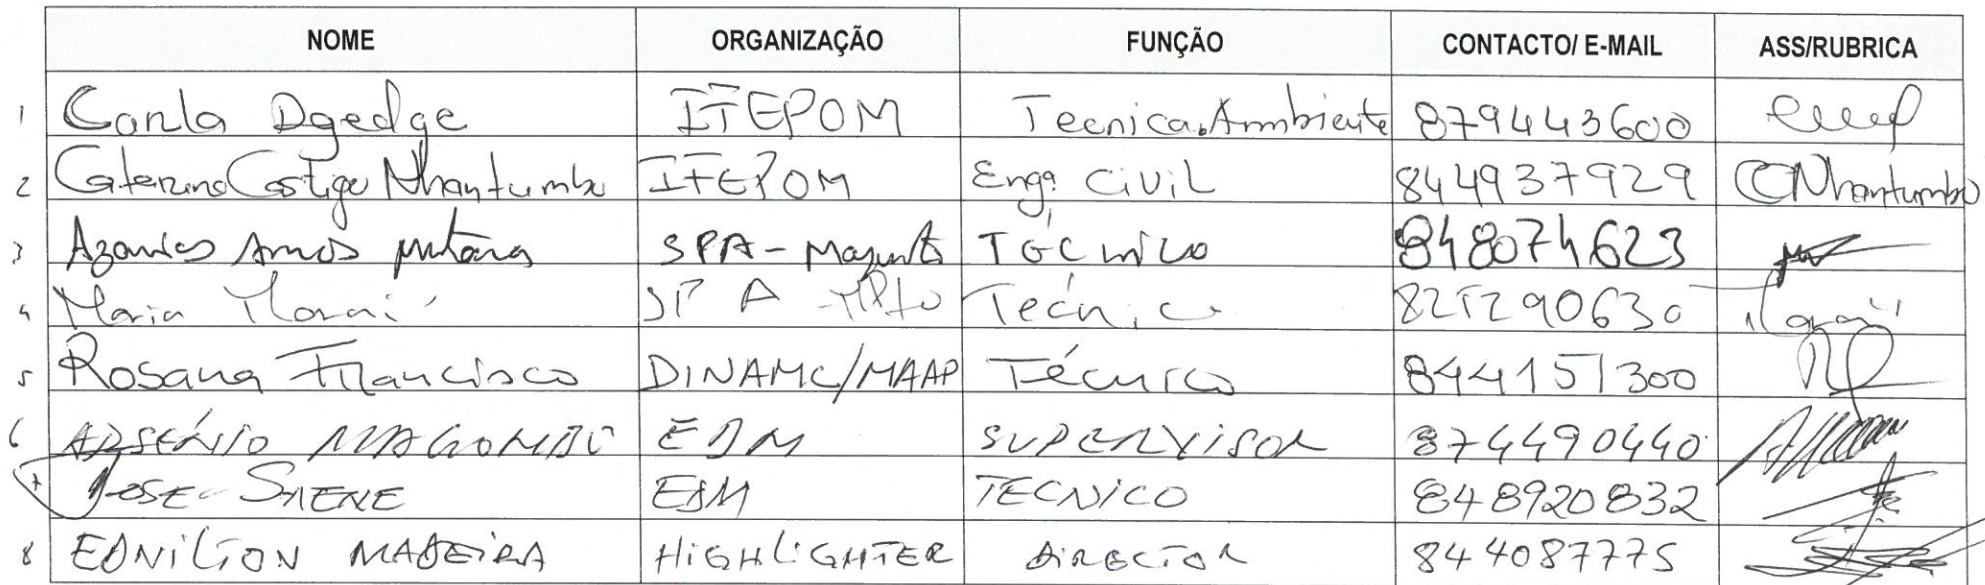 NOME ORGANIZAÇÃO FUNÇÃO CONTACTO/ E-MAIL ASS/RUBRICA
1 Carla Dgedge ITEPOM Tecnica Ambiente 879443600
2 Caterina Castigo Nhantumbo ITEPOM Engª Civil 844937929 CNhantumbo
3 Azarias Amos SPA - Maputo Técnico 848074623
4 Maria SPA - Mpto Tecnico 825290630
5 Rosana Francisco DINAMC/MAAP Técnico 844151300
6 ARSÉNIO MAGOMBO EDM SUPERVISOR 874490440
7 JOSE EDM TECNICO 848920832
8 EDNILTON MADEIRA HIGHLIGHTER DIRECTOR 844087775